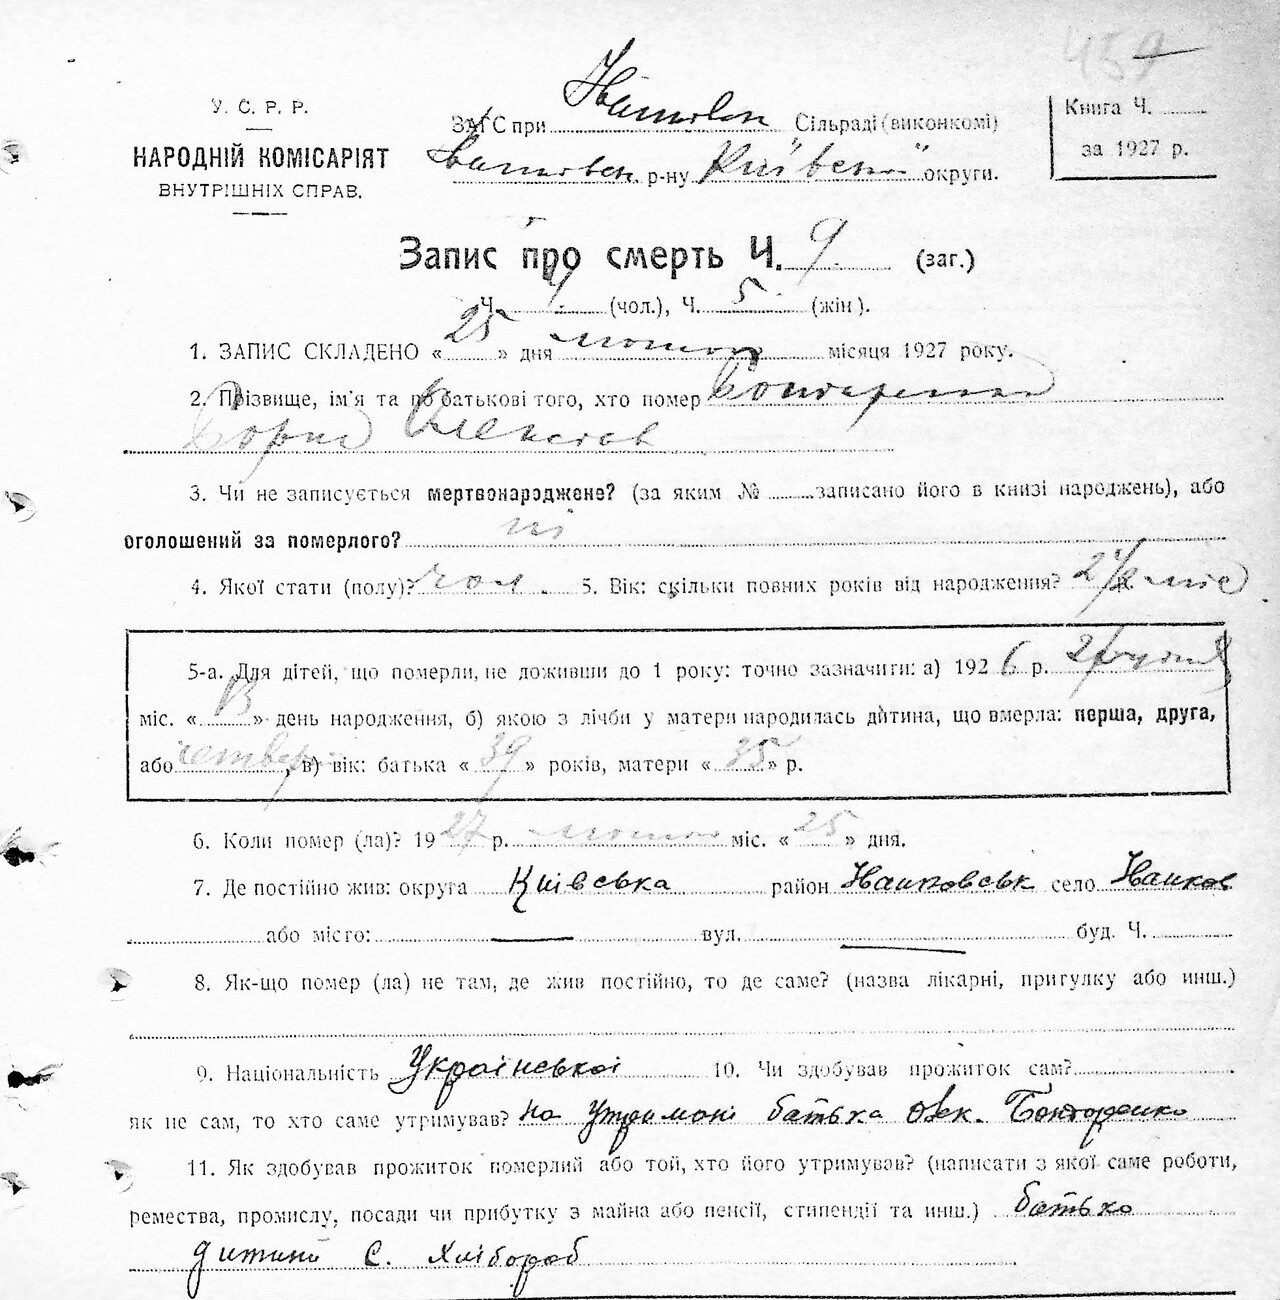 459
У. С. Р. Р.
НАРОДНІЙ КОМІСАРІЯТ
ВНУТРІШНІХ СПРАВ.
ЗАГС при Сільраді (виконкомі)
р-ну Київської округи.
Книга Ч.
за 1927 р.
Запис про смерть Ч. 9 (заг.)
Ч. 4 (чол.), Ч. 5 (жін).
1. ЗАПИС СКЛАДЕНО « 25 » дня лютого місяця 1927 року.
2. Прізвище, ім'я та по батькові того, хто помер Бондаренко
Борис Олексієв
3. Чи не записується мертвонароджене? (за яким № записано його в книзі народжень), або
оголошений за померлого? ні
4. Якої стати (полу)? чол. 5. Вік: скільки повних років від народження? 2 міс
5-а. Для дітей, що померли, не доживши до 1 року: точно зазначити: а) 1926 р. грудня
міс. « » день народження, б) якою з лічби у матери народилась дитина, що вмерла: перша, друга,
або четвер, в) вік: батька « 39 » років, матери « 35 » р.
6. Коли помер (ла)? 1927 р. лютого міс. « 25 » дня.
7. Де постійно жив: округа Київська район село
або місто: — вул. — буд. Ч.
8. Як-що помер (ла) не там, де жив постійно, то де саме? (назва лікарні, пригулку або инш.)
9. Національність Української 10. Чи здобував прожиток сам?
як не сам, то хто саме утримував? На утримані батька Олек. Бондаренко
11. Як здобував прожиток померлий або той, хто його утримував? (написати з якої саме роботи,
ремества, промислу, посади чи прибутку з майна або пенсії, стипендії та инш.) батько
дитини Є. Хлібороб